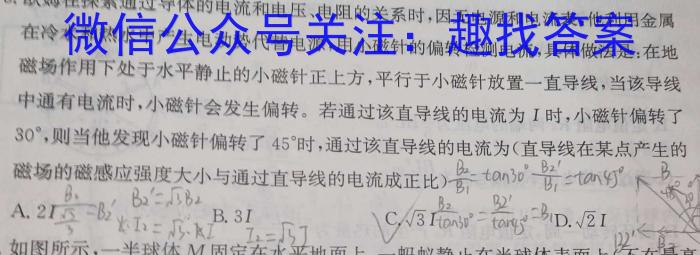 欧姆在探索通过导体的电流和电压、电阻的关系时,因无电源和电流表,他利用金属
在冷水和热水中产生电动势代替电源,用小磁针的偏转检测电流,具体做法是:在地
微信公众号关注:趣找答案
磁场作用下处于水平静止的小磁针正上方,平行于小磁针放置一直导线,当该导线
中通有电流时,小磁针会发生偏转。若通过该直导线的电流为 I 时,小磁针偏转了
30°,则当他发现小磁针偏转了 45°时,通过该直导线的电流为(直导线在某点产生的
磁场的磁感应强度大小与通过直导线的电流成正比) B₂/B₁=tan30° B₂'/B₁=tan45°
A. 2I B. 3I C. √3I D. √2I
B₂'=√3B₂ B₂/tan30°=B₂'/tan45°=B₁
I₂=√3I
如图所示,一半球体 M 固定在水平地面上,一蚂蚁静止在半球体表面上(不在最高